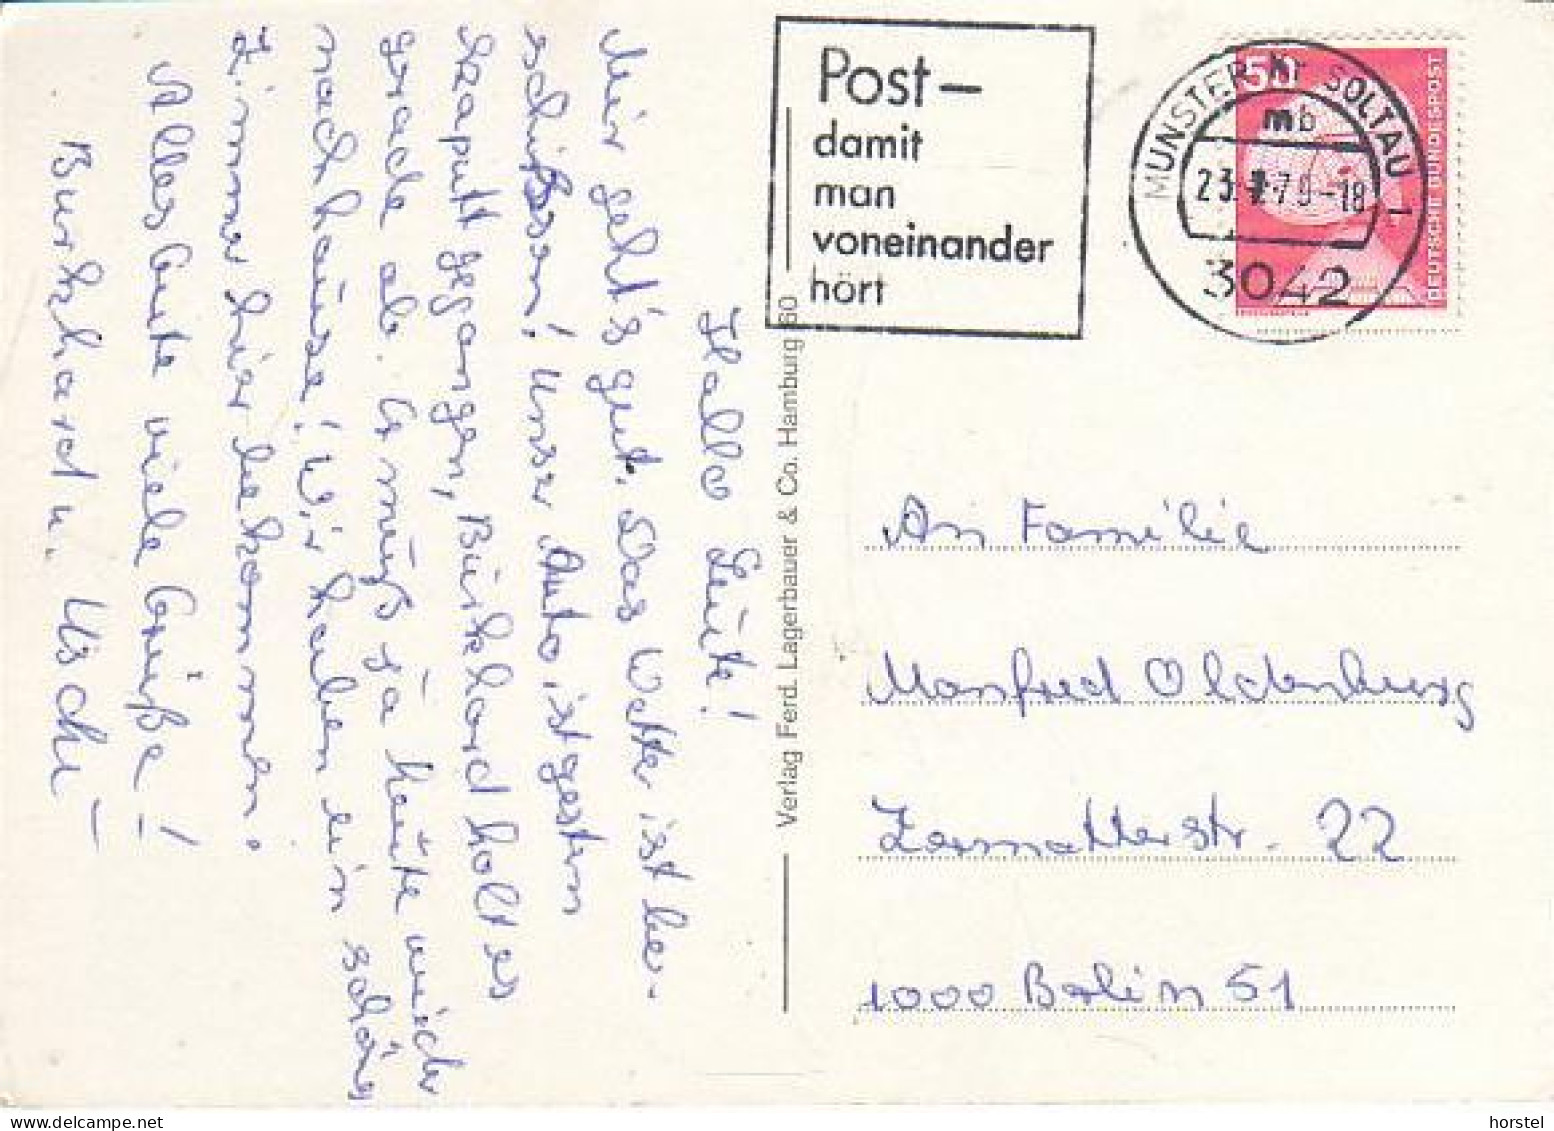 Hallo Leute!
Mir geht's gut. Das Wetter ist be-
schißen! Unser Auto ist gestern
kaputt gegangen, Burkhard holt es
grade ab. Er muß ja heute wieder
nach hause! Wir haben ein schönes
Zimmer hier bekommen.
Alles Gute viele Grüße!
Burkhard u. Uschi
Verlag Ferd. Lagerbauer & Co. Hamburg 60
Post –
damit
man
voneinander
hört
MUNSTER Kr SOLTAU 1
mb
79-18
3042
50
DEUTSCHE BUNDESPOST
An Familie
Manfred Oldenburg
Zermatterstr. 22
1000 Berlin 51
horstel